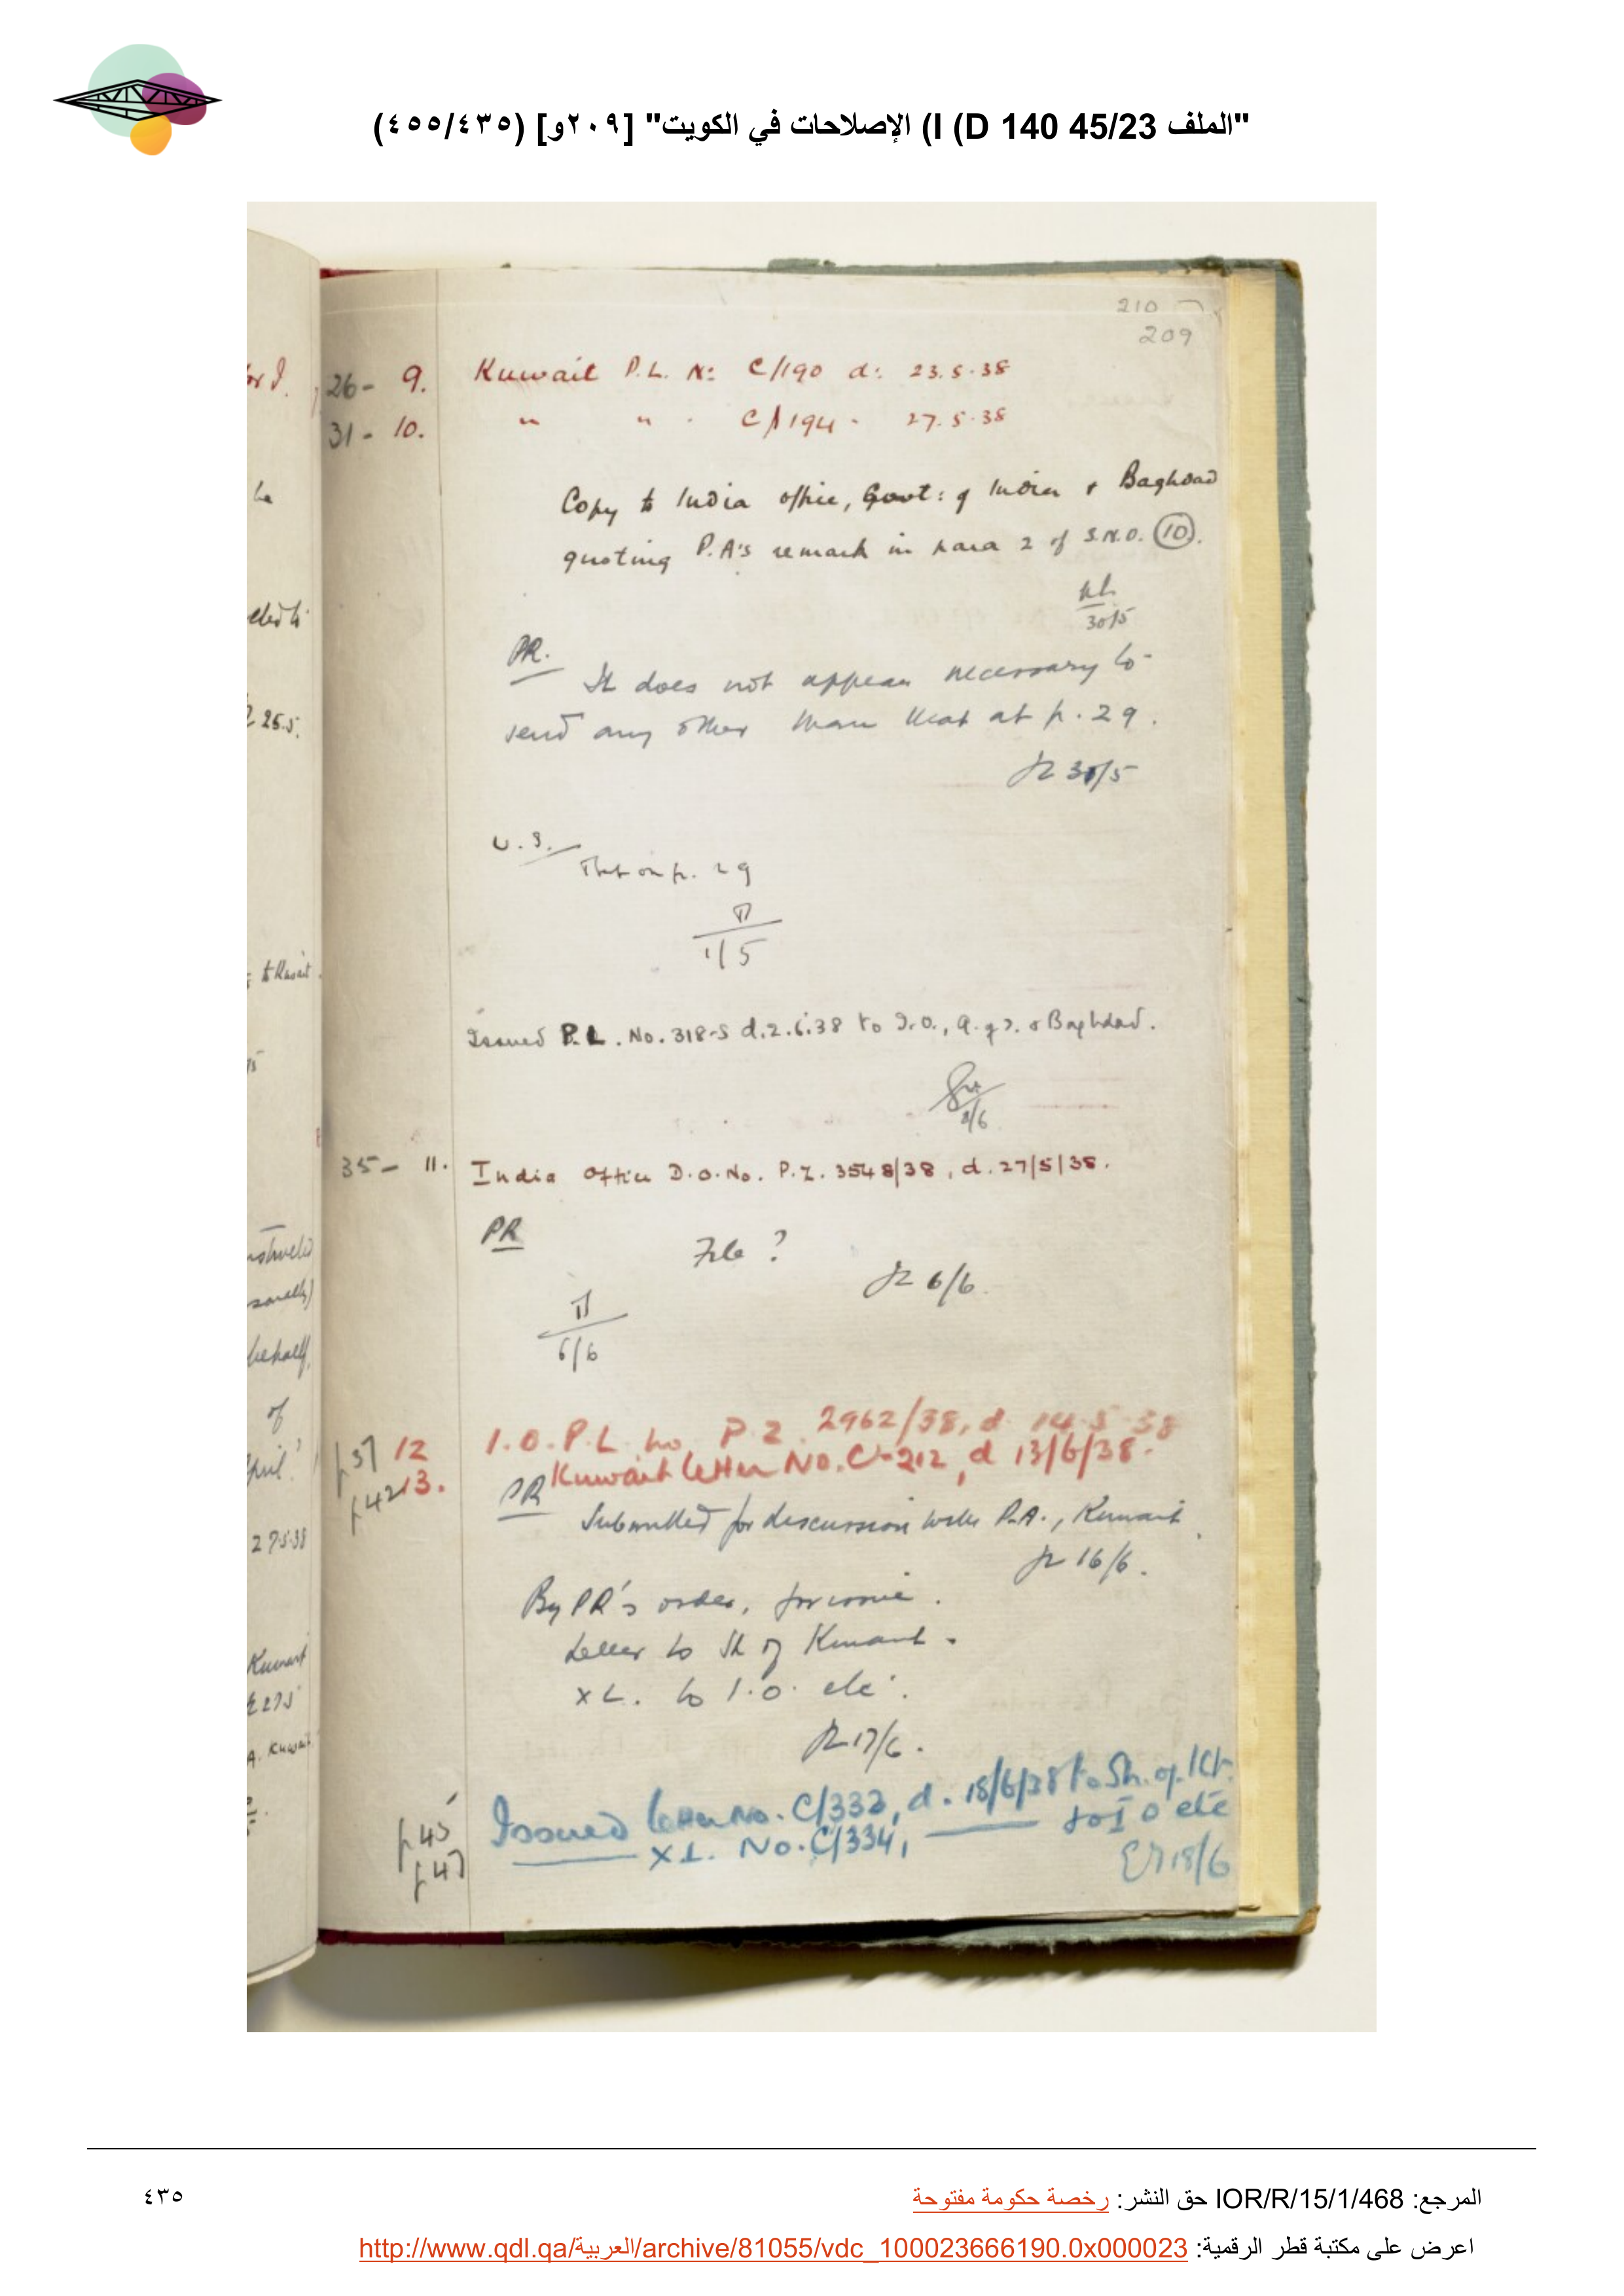 "الملف 45/23 I (D 140) الإصلاحات في الكويت" [٢٠٩و] (٤٥٥/٤٣٥)
210
209
26- 9. Kuwait P.L. No: C/190 d: 23.5.38
31- 10. " " . C/194 - 27.5.38
Copy to India office, Govt: of India & Baghdad
quoting P.A's remark in para 2 of S.N.O. (10).
30/5
PR.
It does not appear necessary to
send any other than that at p. 29.
30/5
U.S.
That on p. 29
1/5
Issued P.L. No. 318-S d.2.6.38 to I.O., G. of I. & Baghdad.
2/6
35- 11. India Office D.O. No. P.Z. 3548/38, d. 27/5/38.
PR
File?
6/6.
6/6
p37 12 I.O. P.L. No P.Z. 2962/38, d 14.5.38
p42 13. Kuwait letter No. C-212, d 13/6/38.
PR
Submitted for discussion with P.A., Kuwait.
16/6.
By PR's order,
Letter to Sh of Kuwait.
XL. to I.O. etc.
17/6.
p45 Issued letter No. C/333, d. 18/6/38 to Sh. of Kt.
p47 XL. No. C/334, —— to I O etc
18/6
for I.
he
25.5.
to Kuwait.
behalf,
of
April'
27.5.38
Kuwait
A. Kuwait
المرجع: IOR/R/15/1/468 حق النشر: رخصة حكومة مفتوحة
٤٣٥
اعرض على مكتبة قطر الرقمية: http://www.qdl.qa/العربية/archive/81055/vdc_100023666190.0x000023